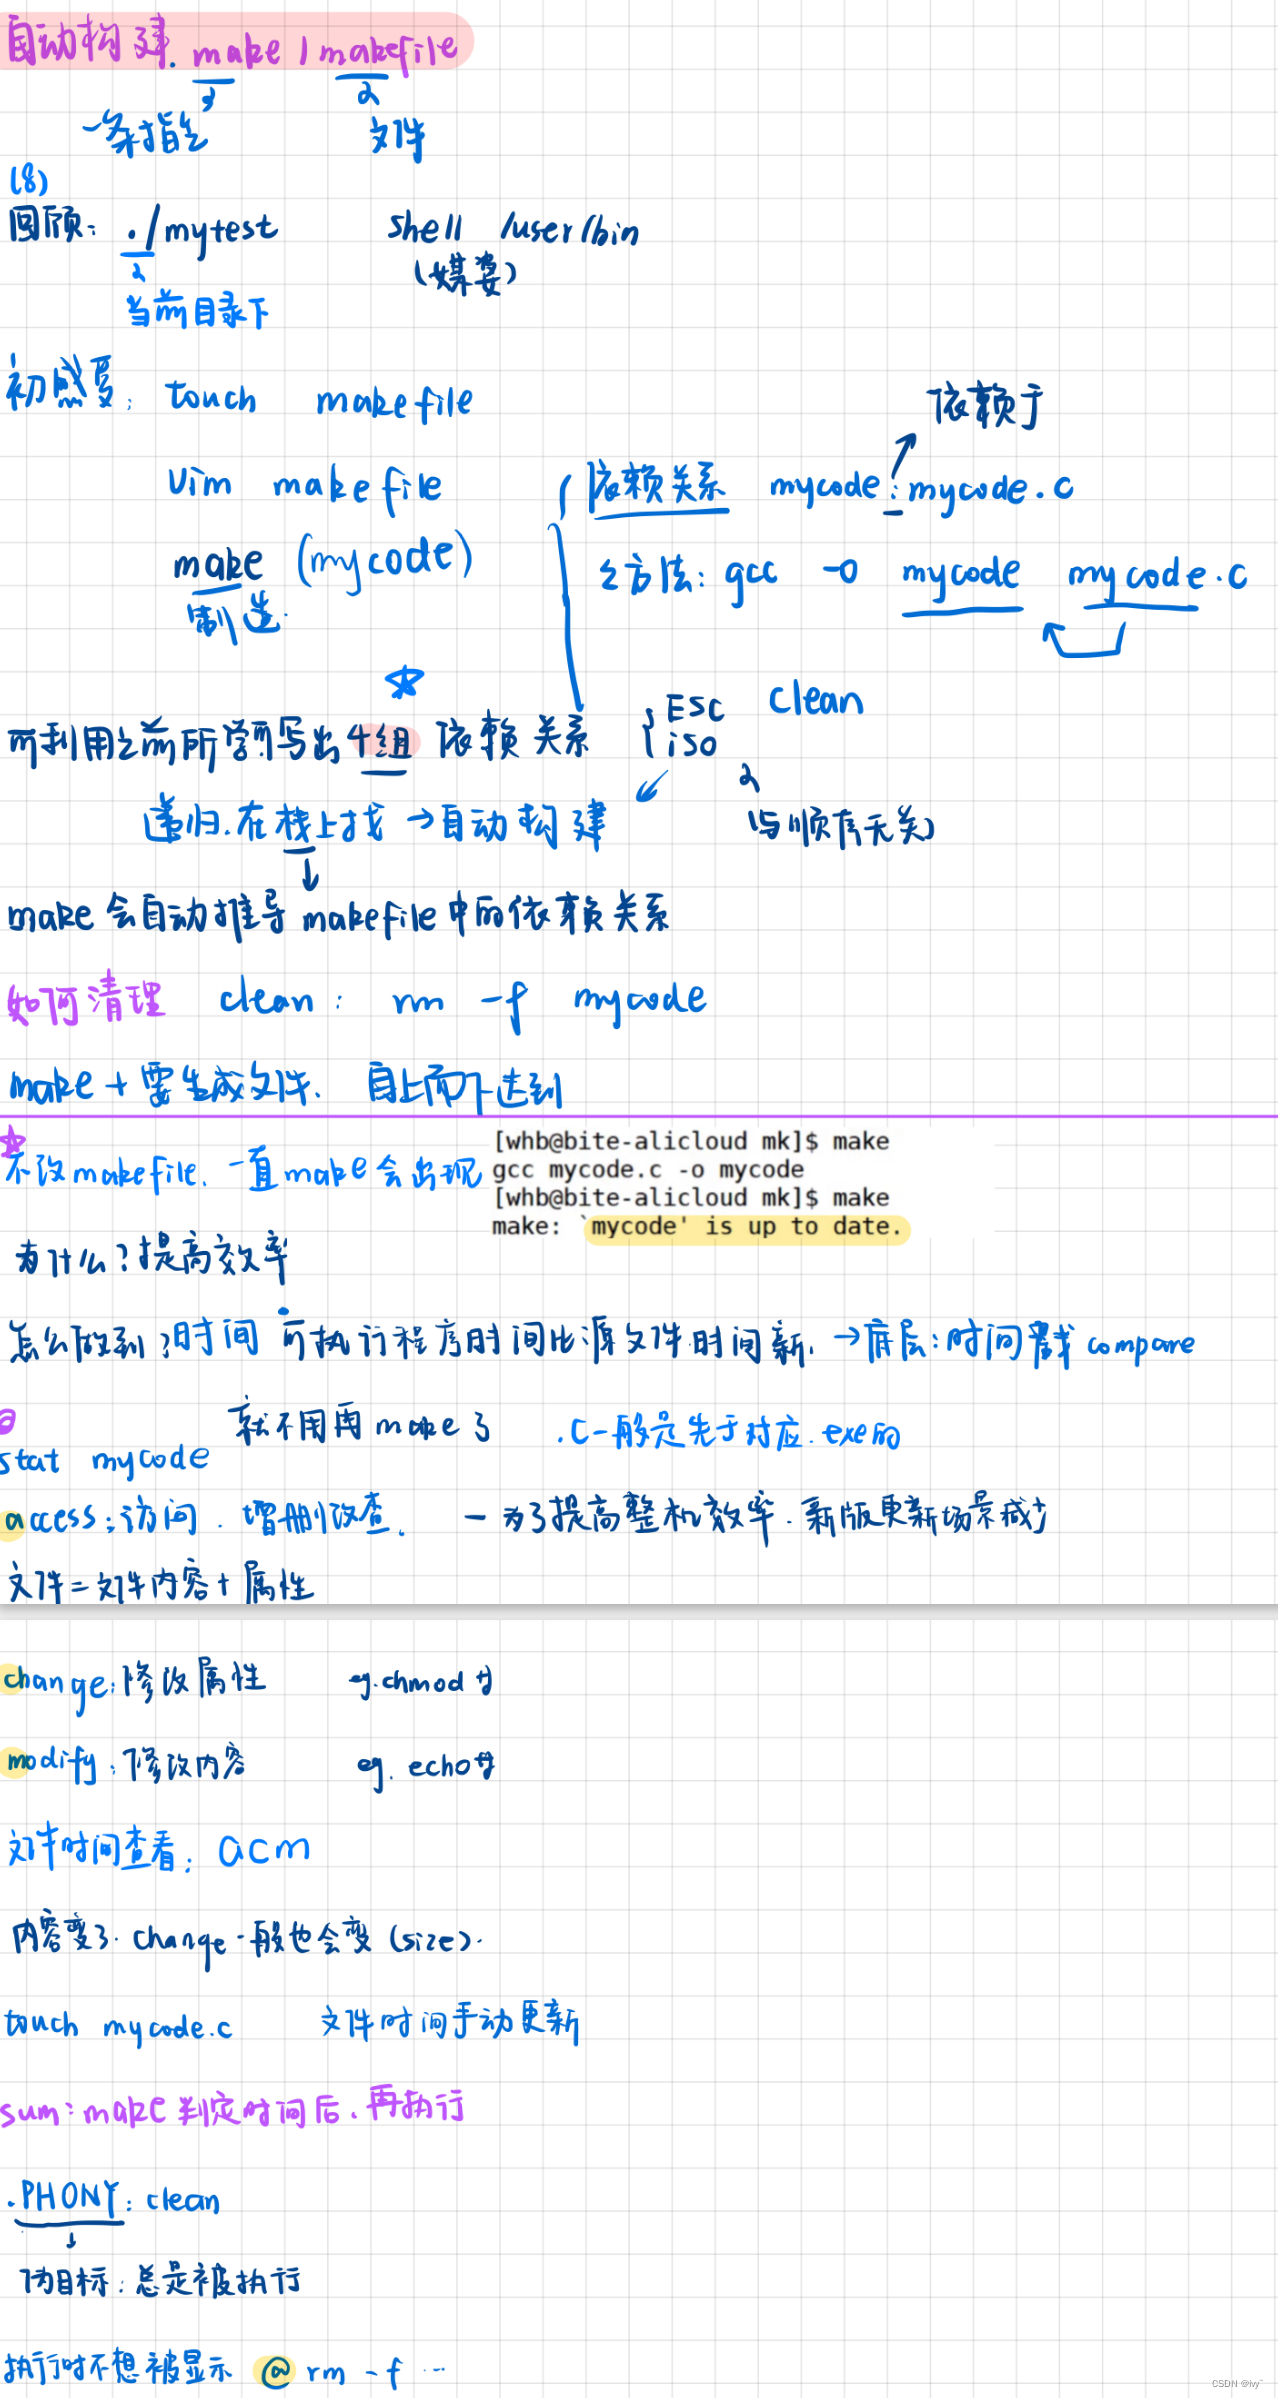 自动构建. make / makefile
一条指令 文件
(8)
回顾: ./mytest shell /user/bin
(媒婆)
当前目录下
初感受: touch makefile
依赖于
vim makefile 依赖关系 mycode:mycode.c
make (mycode) 方法: gcc -o mycode mycode.c
制造.
ESC clean
可利用之前所学可写出4组 依赖关系 iso
(与顺序无关)
递归.在栈上找 →自动构建
make会自动推导makefile中的依赖关系
如何清理 clean: rm -f mycode
make + 要生成文件. 自上而下达到
[whb@bite-alicloud mk]$ make
不改makefile. 一直make会出现 gcc mycode.c -o mycode
[whb@bite-alicloud mk]$ make
make: `mycode' is up to date.
为什么?提高效率
怎么做到?时间 可执行程序时间比源文件时间新. →底层:时间戳compare
就不用再make了 .c一般是先于对应.exe的
stat mycode
access:访问. 增删改查. — 为了提高整机效率.新版更新场景减少
文件=文件内容+属性
change:修改属性 eg.chmod
modify:修改内容 eg. echo
文件时间查看: acm
内容变了.change一般也会变(size).
touch mycode.c 文件时间手动更新
sum:make判定时间后.再执行
.PHONY: clean
伪目标:总是被执行
执行时不想被显示 @ rm -f ...
CSDN @ivy~